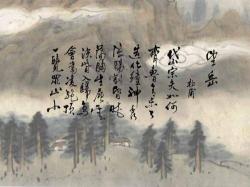 望岳
杜甫
岱宗夫如何
齊魯青未了
造化鍾神秀
陰陽割昏曉
蕩胸生層雲
決眥入歸鳥
會當凌絕頂
一覽眾山小